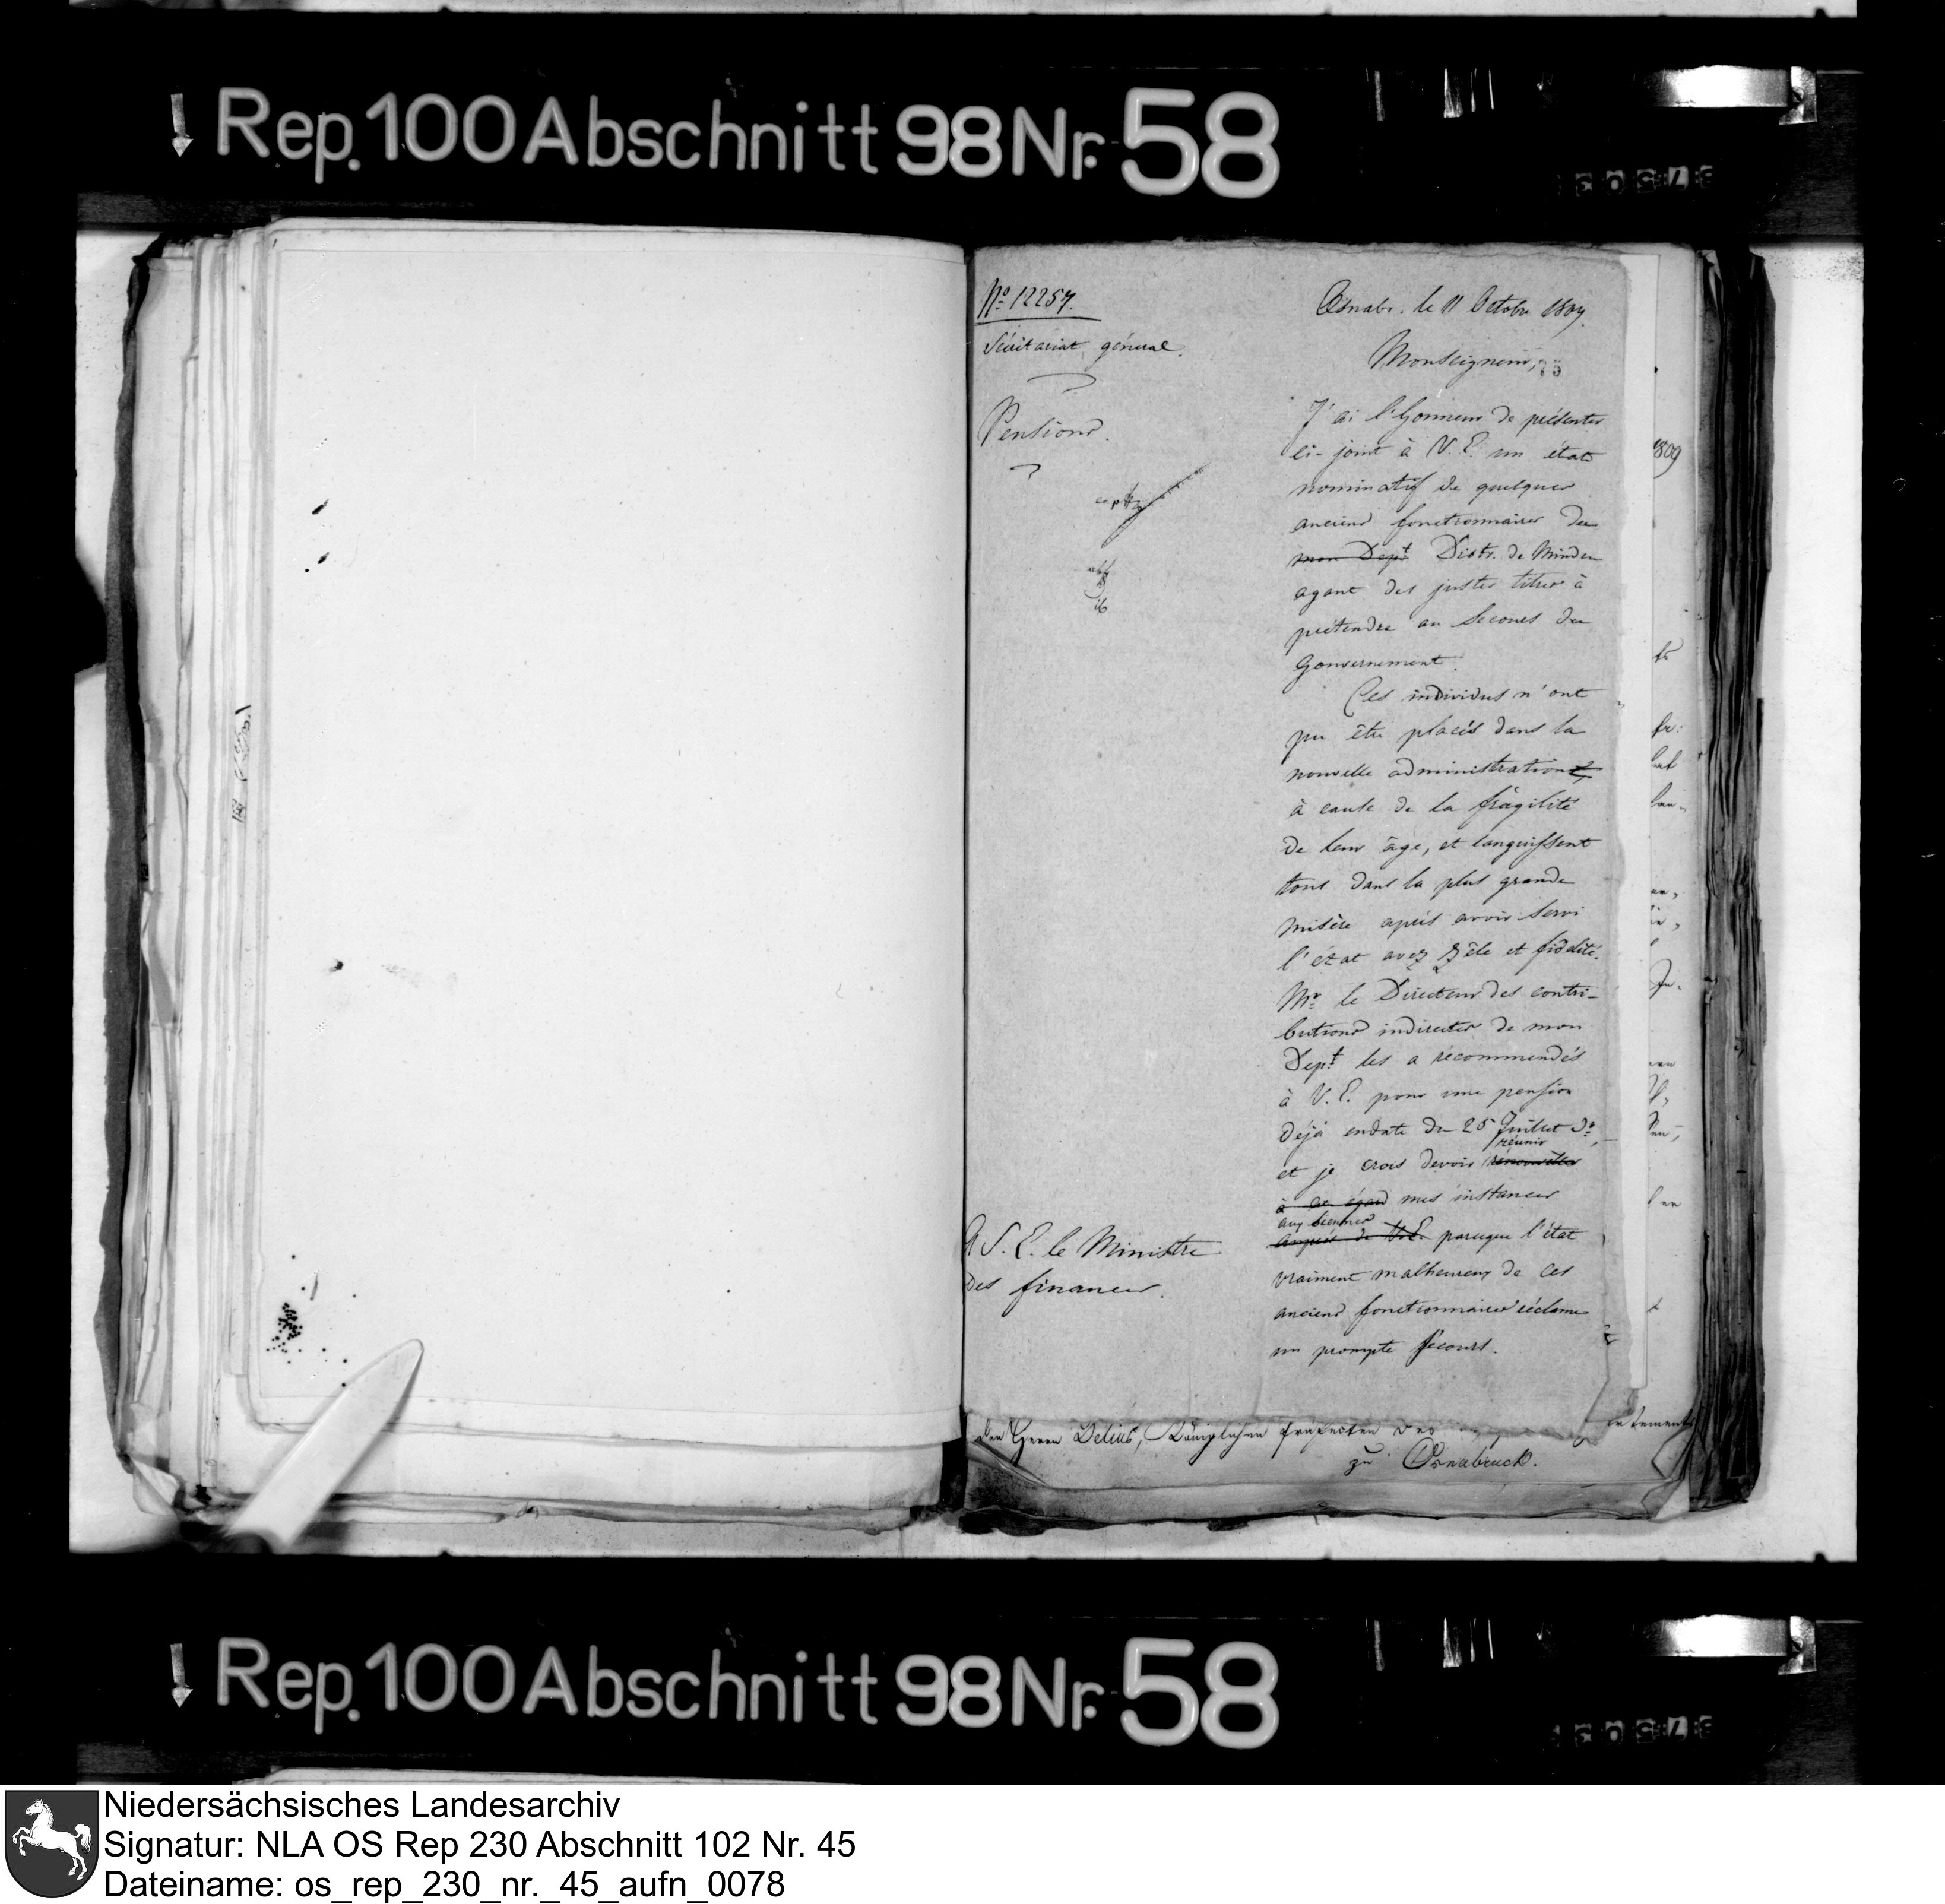 Rep. 100 Abschnitt 98 Nr. 58
No 12257.
Sécrétariat général.
Pensions.
Osnabr. le 11 Octobre 1809.
Monseigneur,
75
J'ai l'honneur de présenter
ci-joint à V. E. un état
nominatif de quelques
anciens fonctionnaires du
mon Dept Distr. de Minden
ayant des justes titres à
prétendre au secours du
Gouvernement.
Ces individus n'ont
pu être placés dans la
nouvelle administration
à cause de la fragilité
de leur âge, et languissent
tous dans la plus grande
misère après avoir servi
l'état avec zèle et fidélité.
Mr le Directeur des contri-
butions indirectes de mon
Dept les a récommendés
à V. E. pour une pension
déjà endate du 25 Juillet dr,
réunir
et je crois devoir rénouveller
à cet égard mes instances
aux siennes
auprès de V. E. parceque l'état
vraiment malheureux de ces
anciens fonctionnaires réclame
un prompte secours.
A S. E. le Ministre
des finances.
1809
den Herrn Delius, Königlichen Präfecten des
zu Osnabruck.
Rep. 100 Abschnitt 98 Nr. 58
Niedersächsisches Landesarchiv
Signatur: NLA OS Rep 230 Abschnitt 102 Nr. 45
Dateiname: os_rep_230_nr._45_aufn_0078